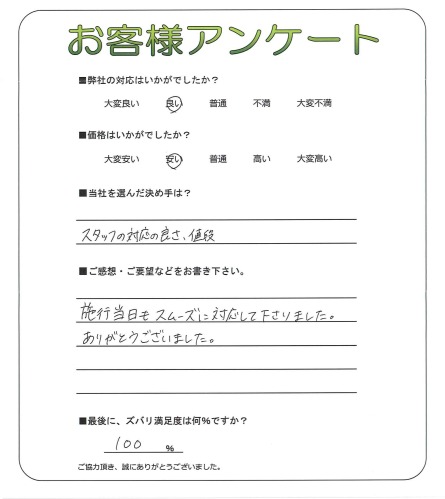 お客様アンケート
■弊社の対応はいかがでしたか？
大変良い 良い 普通 不満 大変不満
■価格はいかがでしたか？
大変安い 安い 普通 高い 大変高い
■当社を選んだ決め手は？
スタッフの対応の良さ、値段
■ご感想・ご要望などをお書き下さい。
施行当日もスムーズに対応して下さりました。
ありがとうございました。
■最後に、ズバリ満足度は何%ですか？
100 %
ご協力頂き、誠にありがとうございました。